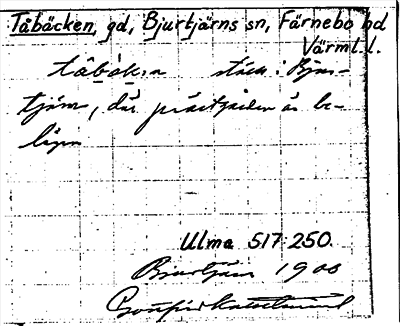 Tåbäcken, gd, Bjurtjärns sn, Färnebo hd
Värml. l.
tåbäkɜn i Bjur-
tjärn, där prästgården är be-
lägen
Ulma 517:250.
Bjurtjärn 1908